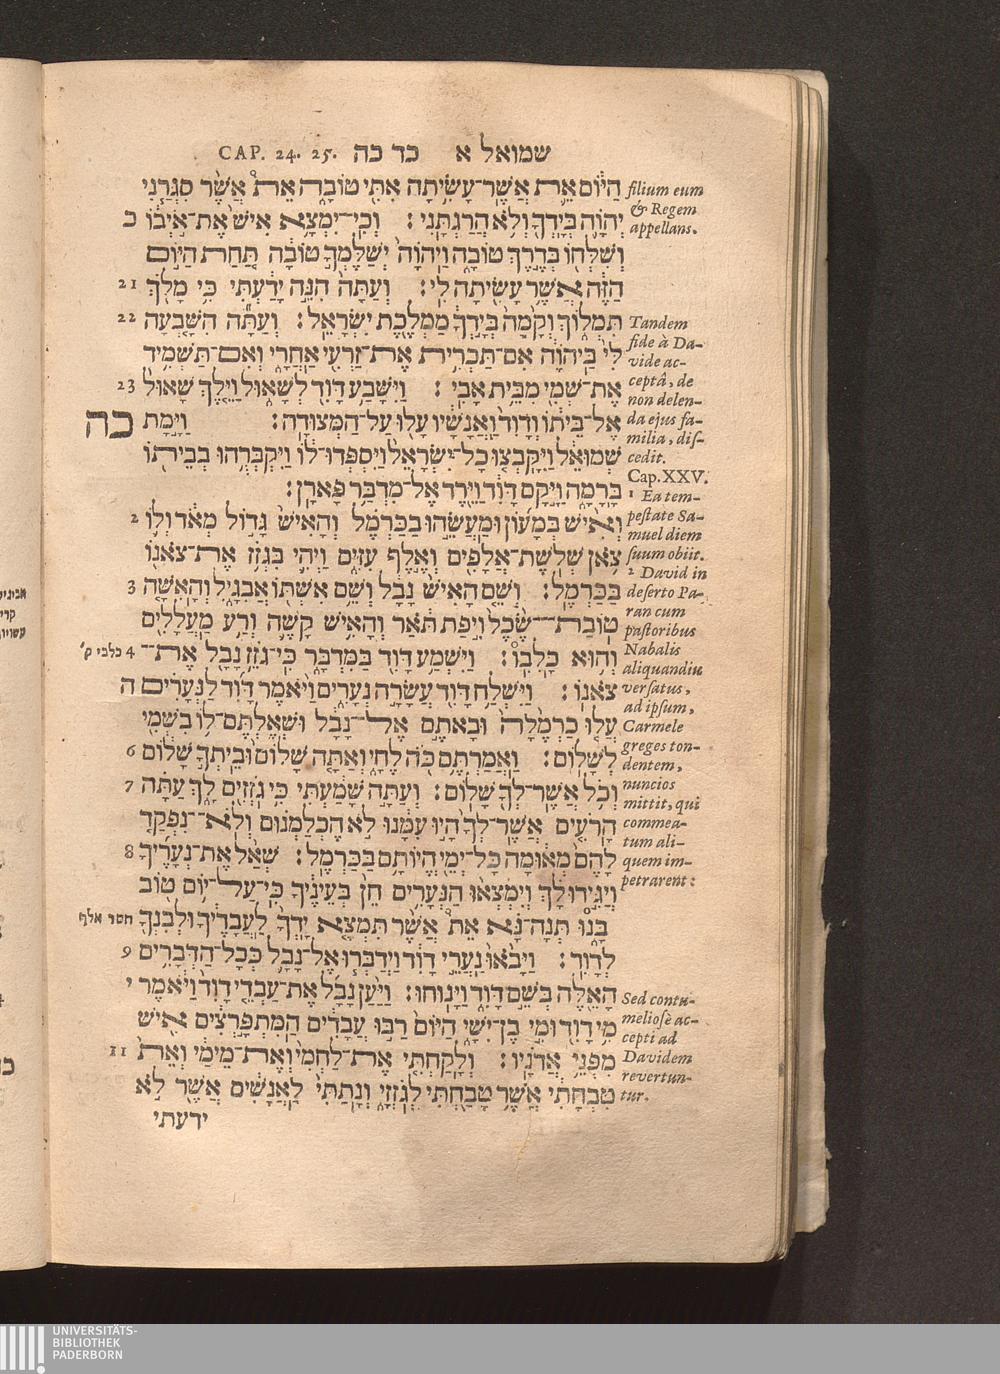 שמואל א כד כה CAP. 24. 25.
הַיּוֹם אֵת אֲשֶׁר־עָשִׂיתָה אִתִּי טוֹבָה אֵת אֲשֶׁר סִגְּרַנִי
יְהוָה בְּיָדְךָ וְלֹא הֲרַגְתָּנִי׃ וְכִי־יִמְצָא אִישׁ אֶת־אֹיְבוֹ כ
וְשִׁלְּחוֹ בְּדֶרֶךְ טוֹבָה וַיהוָה יְשַׁלֶּמְךָ טוֹבָה תַּחַת הַיּוֹם
הַזֶּה אֲשֶׁר עָשִׂיתָה לִי׃ וְעַתָּה הִנֵּה יָדַעְתִּי כִּי מָלֹךְ 21
תִּמְלוֹךְ וְקָמָה בְּיָדְךָ מַמְלֶכֶת יִשְׂרָאֵל׃ וְעַתָּה הִשָּׁבְעָה 22
לִּי בַּיהוָה אִם־תַּכְרִית אֶת־זַרְעִי אַחֲרָי וְאִם־תַּשְׁמִיד
אֶת־שְׁמִי מִבֵּית אָבִי׃ וַיִּשָּׁבַע דָּוִד לְשָׁאוּל וַיֵּלֶךְ שָׁאוּל 23
אֶל־בֵּיתוֹ וְדָוִד וַאֲנָשָׁיו עָלוּ עַל־הַמְּצוּדָה׃ וַיָּמָת כה
שְׁמוּאֵל וַיִּקָּבְצוּ כָל־יִשְׂרָאֵל וַיִּסְפְּדוּ־לוֹ וַיִּקְבְּרֻהוּ בְּבֵיתוֹ
בָּרָמָה וַיָּקָם דָּוִד וַיֵּרֶד אֶל־מִדְבַּר פָּארָן׃
וְאִישׁ בְּמָעוֹן וּמַעֲשֵׂהוּ בַכַּרְמֶל וְהָאִישׁ גָּדוֹל מְאֹד וְלוֹ 2
צֹאן שְׁלֹשֶׁת־אֲלָפִים וְאֶלֶף עִזִּים וַיְהִי בִּגְזֹז אֶת־צֹאנוֹ
בַּכַּרְמֶל׃ וְשֵׁם הָאִישׁ נָבָל וְשֵׁם אִשְׁתּוֹ אֲבִגָיִל וְהָאִשָּׁה 3
טוֹבַת־שֶׂכֶל וִיפַת תֹּאַר וְהָאִישׁ קָשֶׁה וְרַע מַעֲלָלִים
וְהוּא כָלִבּוֹ׃ וַיִּשְׁמַע דָּוִד בַּמִּדְבָּר כִּי־גֹזֵז נָבָל אֶת־ 4 כלבי ק'
צֹאנוֹ׃ וַיִּשְׁלַח דָּוִד עֲשָׂרָה נְעָרִים וַיֹּאמֶר דָּוִד לַנְּעָרִים ה
עֲלוּ כַרְמֶלָה וּבָאתֶם אֶל־נָבָל וּשְׁאֶלְתֶּם־לוֹ בִשְׁמִי
לְשָׁלוֹם׃ וַאֲמַרְתֶּם כֹּה לֶחָי וְאַתָּה שָׁלוֹם וּבֵיתְךָ שָׁלוֹם 6
וְכֹל אֲשֶׁר־לְךָ שָׁלוֹם׃ וְעַתָּה שָׁמַעְתִּי כִּי גֹזְזִים לָךְ עַתָּה 7
הָרֹעִים אֲשֶׁר־לְךָ הָיוּ עִמָּנוּ לֹא הֶכְלַמְנוּם וְלֹא־נִפְקַד
לָהֶם מְאוּמָה כָּל־יְמֵי הֱיוֹתָם בַּכַּרְמֶל׃ שְׁאַל אֶת־נְעָרֶיךָ 8
וְיַגִּידוּ לָךְ וְיִמְצְאוּ הַנְּעָרִים חֵן בְּעֵינֶיךָ כִּי־עַל־יוֹם טוֹב
בָּנוּ תְּנָה־נָּא אֵת אֲשֶׁר תִּמְצָא יָדְךָ לַעֲבָדֶיךָ וּלְבִנְךָ חסר אלף
לְדָוִד׃ וַיָּבֹאוּ נַעֲרֵי דָוִד וַיְדַבְּרוּ אֶל־נָבָל כְּכָל־הַדְּבָרִים 9
הָאֵלֶּה בְּשֵׁם דָּוִד וַיָּנוּחוּ׃ וַיַּעַן נָבָל אֶת־עַבְדֵי דָוִד וַיֹּאמֶר י
מִי דָוִד וּמִי בֶן־יִשָׁי הַיּוֹם רַבּוּ עֲבָדִים הַמִּתְפָּרְצִים אִישׁ
מִפְּנֵי אֲדֹנָיו׃ וְלָקַחְתִּי אֶת־לַחְמִי וְאֶת־מֵימַי וְאֵת 11
טִבְחָתִי אֲשֶׁר טָבַחְתִּי לְגֹזְזָי וְנָתַתִּי לַאֲנָשִׁים אֲשֶׁר לֹא
ידעתי
filium eum
& Regem
appellans.
Tandem
fide à Da-
vide ac-
ceptâ, de
non delen-
da ejus fa-
milia, dis-
cedit.
Cap. XXV.
1 Ea tem-
pestate Sa-
muel diem
suum obiit.
2 David in
deserto Pa-
ran cum
pastoribus
Nabalis
aliquandiu
versatus,
ad ipsum,
Carmele
greges ton-
dentem,
nuncios
mittit, qui
commea-
tum ali-
quem im-
petrarent:
Sed contu-
meliosè ac-
cepti ad
Davidem
revertun-
tur.
UNIVERSITÄTS-
BIBLIOTHEK
PADERBORN